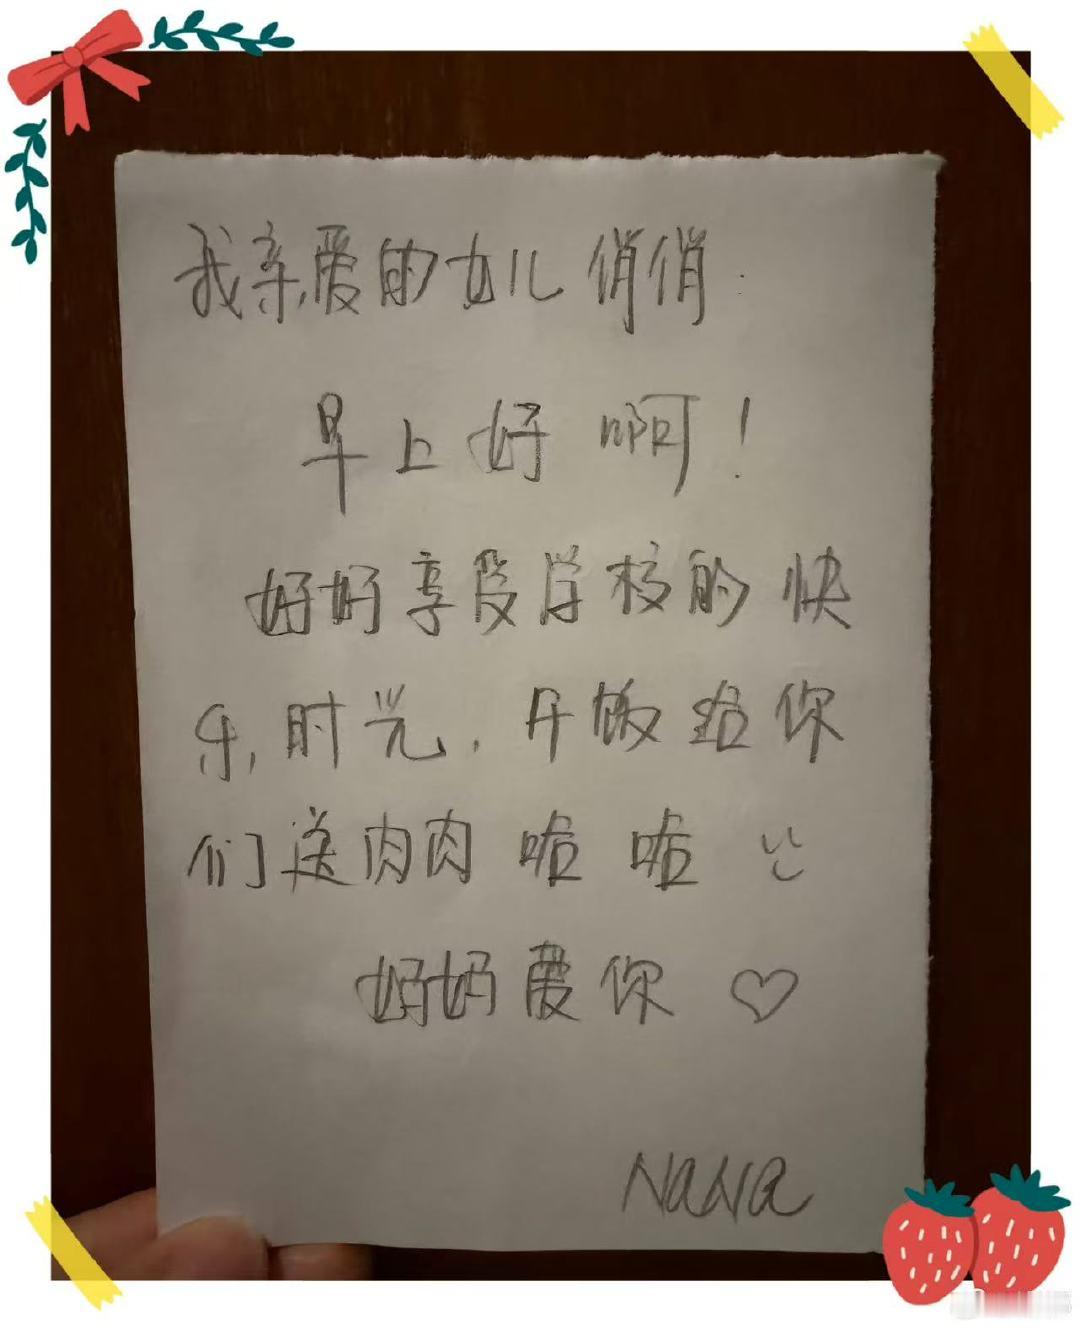 我亲爱的女儿俏俏:
早上好啊!
好好享受学校的快
乐时光,午饭给你
们送肉肉啦啦
妈妈爱你♡
NaNa